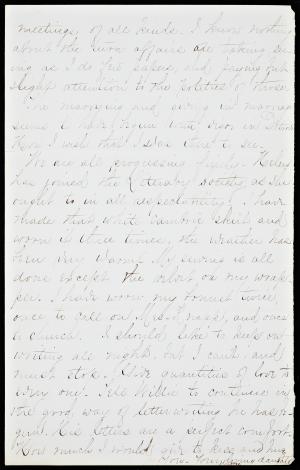 meetings, of all kinds. I know nothing
about the war affairs are taking
ing as I do the
slight attention to the politics of those
The marrying and giving in marriage
seems to have begun
How I wish that I was there to see.
We are all progressing finely. Helen
has joined the Literary society, as she
ought to in all I have
made that white cambric skirt and
worn it three times, the weather has
been very warm. My sewing is all
done except the velvet on my wrap-
per. I have worn my bonnet twice,
once to call on Mrs. and once
to church. I should like to keep on
writing all night, but I can't and
must stop. Give quantities of love to
every one. Tell Willie to continue in
the good way of letter writing he has
His letters are a perfect comfort.
How much I would give to kiss and hug
you.